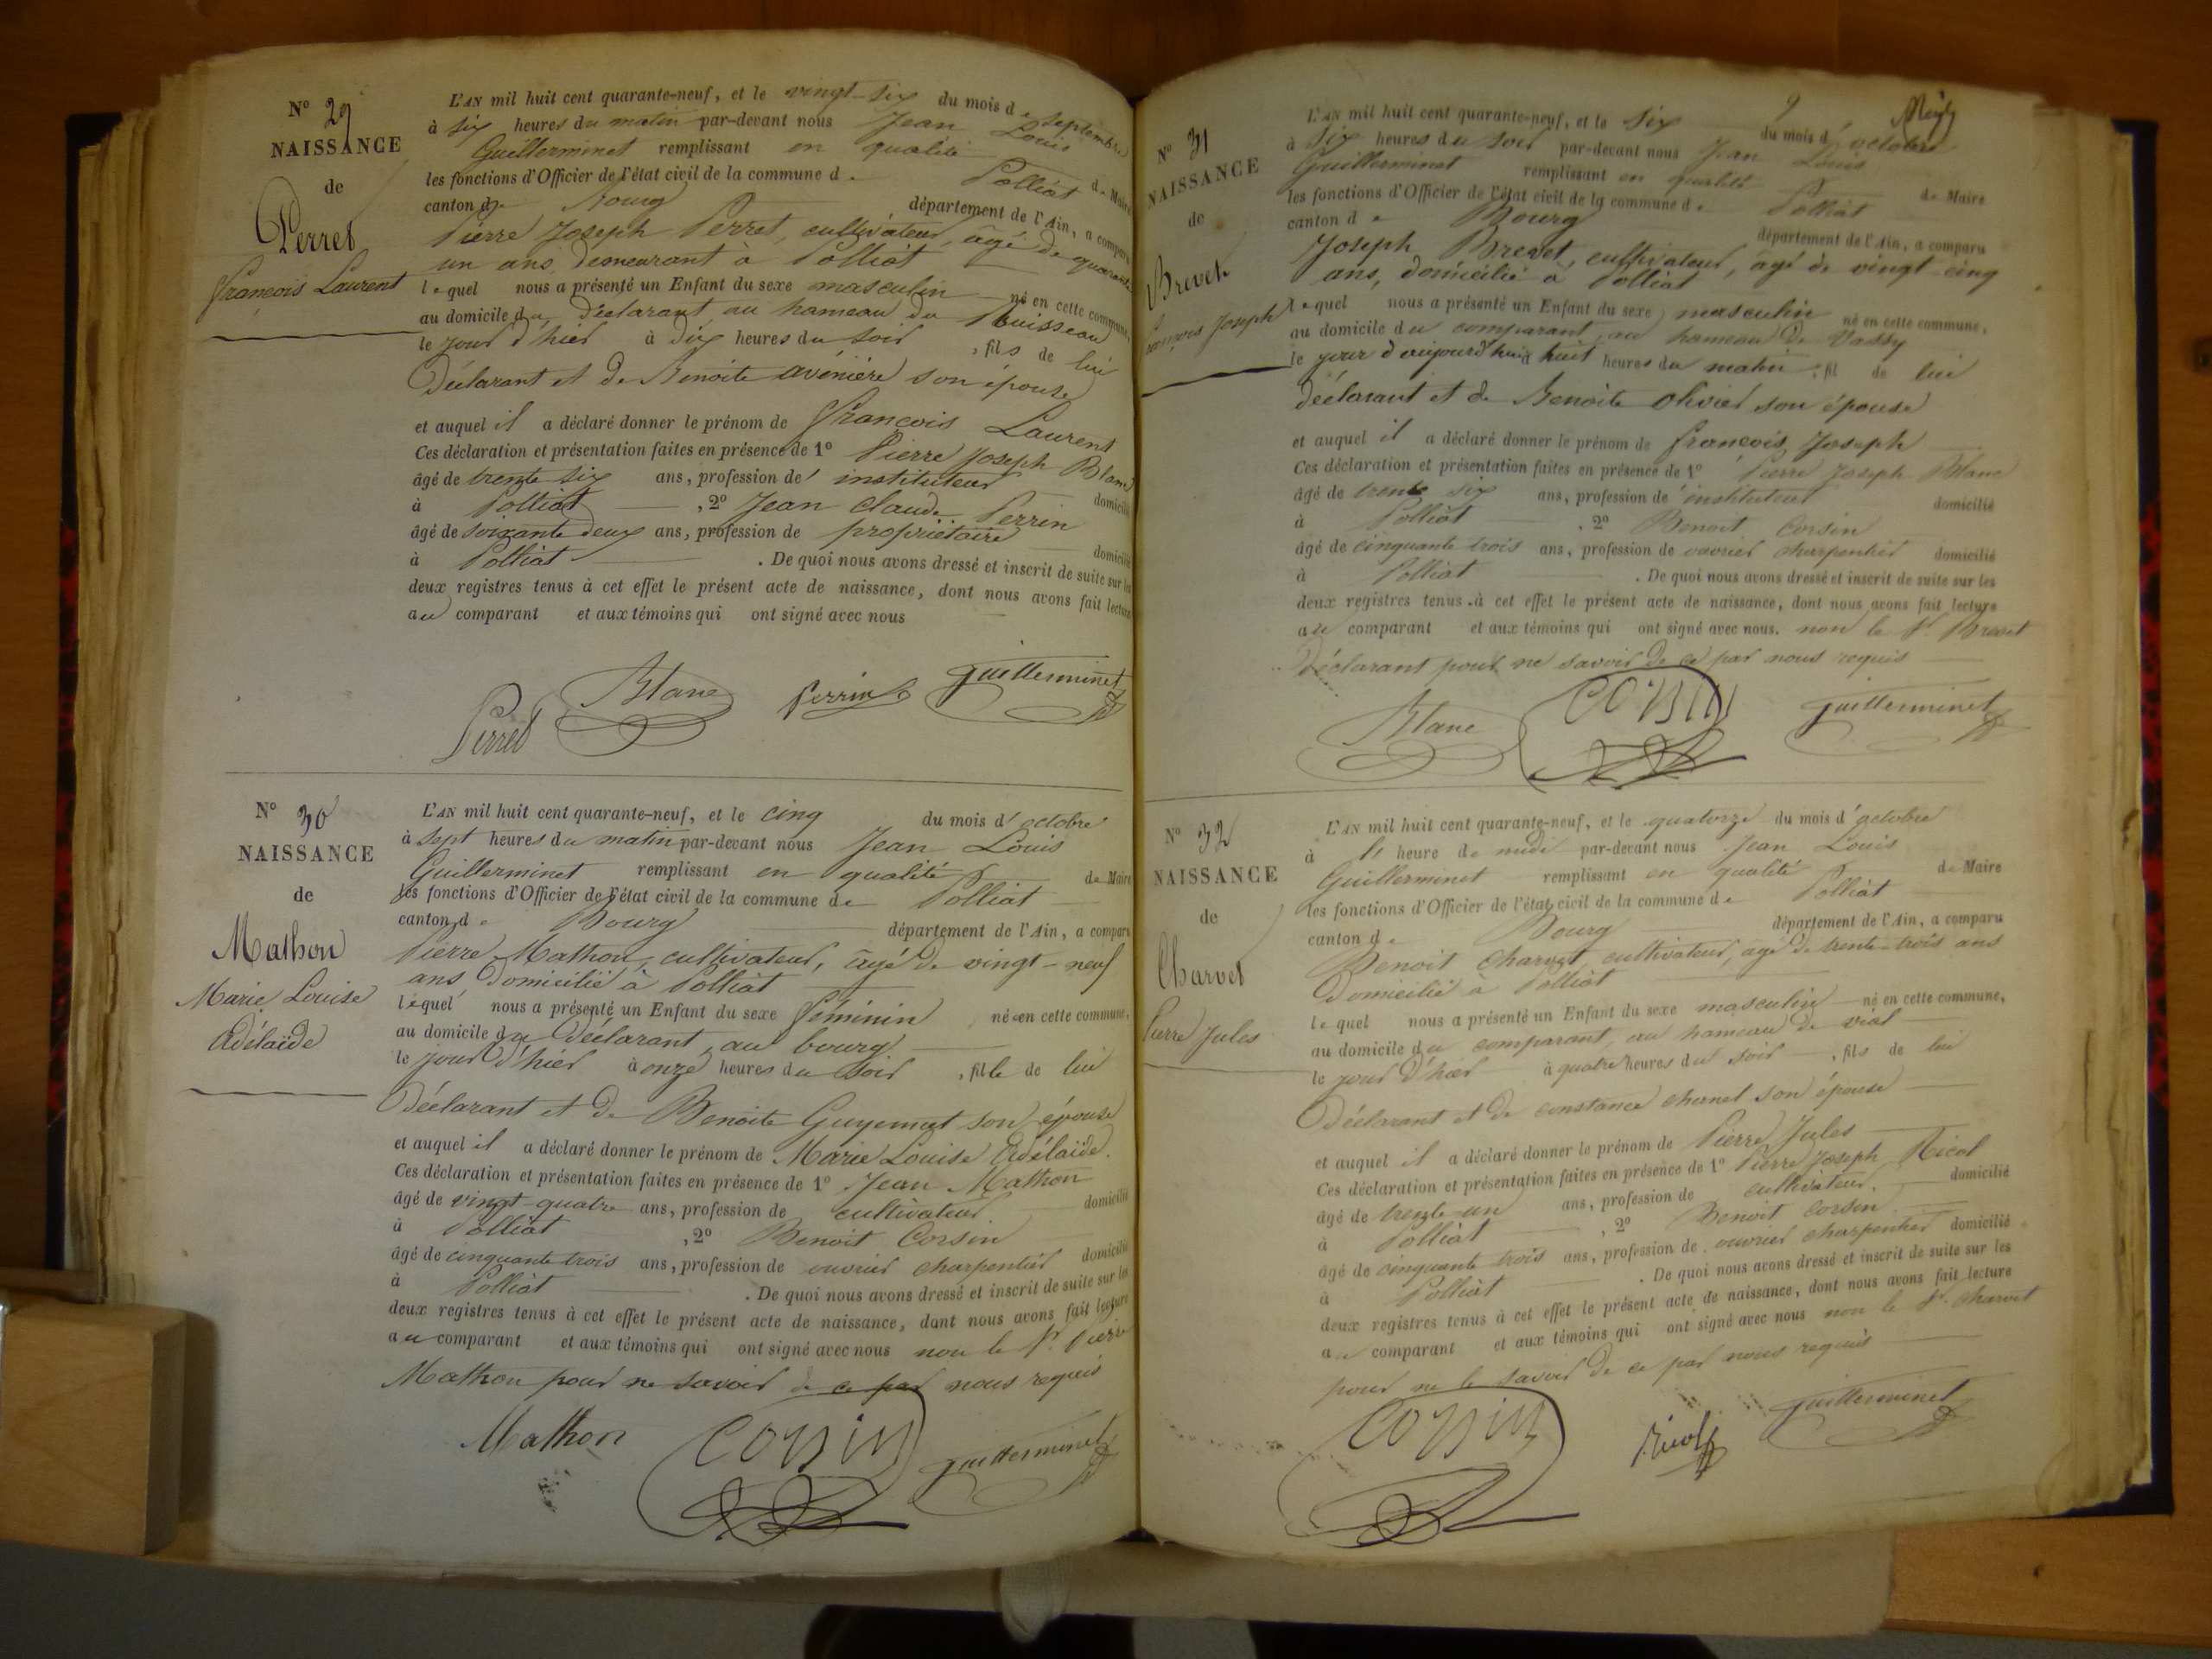 N° 29
NAISSANCE
de
Perret
François Laurent
L'AN mil huit cent quarante-neuf, et le vingt-six du mois de septembre
à six heures du matin par-devant nous Jean Louis
Guillerminet remplissant en qualité de Maire
les fonctions d'Officier de l'état civil de la commune d. Polliat
canton de Bourg département de l'Ain, a comparu
Pierre Joseph Perret, cultivateur, âgé de quarante
un ans, demeurant à Polliat
lequel nous a présenté un Enfant du sexe masculin né en cette commune,
au domicile du Déclarant, au hameau du Ruisseau
le jour d'hier à dix heures du soir, fils de lui
Déclarant et de Benoite avénière son épouse
et auquel il a déclaré donner le prénom de François Laurent
Ces déclaration et présentation faites en présence de 1° Pierre Joseph Blanc
âgé de trente six ans, profession de instituteur domicilié
à Polliat, 2° Jean Claude Perrin
âgé de soixante deux ans, profession de propriétaire domicilié
à Polliat. De quoi nous avons dressé et inscrit de suite sur les
deux registres tenus à cet effet le présent acte de naissance, dont nous avons fait lecture
au comparant et aux témoins qui ont signé avec nous
Perret Blanc Perrin guillerminet
N° 30
NAISSANCE
de
Mathon
Marie Louise
Adélaïde
L'AN mil huit cent quarante-neuf, et le cinq du mois d'octobre
à sept heures du matin par-devant nous Jean Louis
Guillerminet remplissant en qualité de Maire
les fonctions d'Officier de l'état civil de la commune de Polliat
canton de Bourg département de l'Ain, a comparu
Pierre Mathon, cultivateur, âgé de vingt-neuf
ans, domicilié à Polliat
lequel nous a présenté un Enfant du sexe féminin né en cette commune,
au domicile du Déclarant, au bourg
le jour d'hier à onze heures du soir, fille de lui
Déclarant et de Benoite son épouse
et auquel il a déclaré donner le prénom de Marie Louise Adélaïde.
Ces déclaration et présentation faites en présence de 1° Jean Mathon
âgé de vingt-quatre ans, profession de cultivateur domicilié
à Polliat, 2° Benoit Corsin
âgé de cinquante trois ans, profession de ouvrier charpentier domicilié
à Polliat. De quoi nous avons dressé et inscrit de suite sur les
deux registres tenus à cet effet le présent acte de naissance, dont nous avons fait lecture
au comparant et aux témoins qui ont signé avec nous non le Sr. Pierre
Mathon pour ne savoir de ce par nous requis
Mathon Corsin guillerminet
N° 31
NAISSANCE
de
Brevet
François Joseph
9
L'AN mil huit cent quarante-neuf, et le six du mois d'octobre
à six heures du soir par-devant nous Jean Louis
Guillerminet remplissant en qualité de Maire
les fonctions d'Officier de l'état civil de la commune de Polliat
canton de Bourg département de l'Ain, a comparu
Joseph Brevet, cultivateur, âgé de vingt-cinq
ans, domicilié à Polliat
lequel nous a présenté un Enfant du sexe masculin né en cette commune,
au domicile du comparant, au hameau de Vassy
le jour d'aujourd'hui à huit heures du matin, fil de lui
déclarant et de Benoite olivier son épouse
et auquel il a déclaré donner le prénom de françois Joseph
Ces déclaration et présentation faites en présence de 1° Pierre Joseph Blanc
âgé de trente six ans, profession de instituteur domicilié
à Polliat, 2° Benoit Corsin
âgé de cinquante trois ans, profession de ouvrier charpentier domicilié
à Polliat. De quoi nous avons dressé et inscrit de suite sur les
deux registres tenus à cet effet le présent acte de naissance, dont nous avons fait lecture
au comparant et aux témoins qui ont signé avec nous. non le Sr. Brevet
Déclarant pour ne savoir de ce par nous requis
Blanc Corsin guillerminet
N° 32
NAISSANCE
de
Charvet
Pierre Jules
L'AN mil huit cent quarante-neuf, et le quatorze du mois d'octobre
à l' heure de midi par-devant nous Jean Louis
Guillerminet remplissant en qualité de Maire
les fonctions d'Officier de l'état civil de la commune de Polliat
canton de Bourg département de l'Ain, a comparu
Benoit Charvet, cultivateur, âgé de trente-trois ans
Domicilié à Polliat
lequel nous a présenté un Enfant du sexe masculin né en cette commune,
au domicile du comparant, au hameau de vial
le jour d'hier à quatre heures du soir, fils de lui
Déclarant et de constance chernet son épouse
et auquel il a déclaré donner le prénom de Pierre Jules
Ces déclaration et présentation faites en présence de 1° Pierre Joseph Nicol
âgé de trente un ans, profession de cultivateur, domicilié
à Polliat, 2° Benoit Corsin
âgé de cinquante trois ans, profession de ouvrier charpentier domicilié
à Polliat. De quoi nous avons dressé et inscrit de suite sur les
deux registres tenus à cet effet le présent acte de naissance, dont nous avons fait lecture
au comparant et aux témoins qui ont signé avec nous non le Sr. charvet
pour ne le savoir de ce par nous requis
Corsin Nicol guillerminet